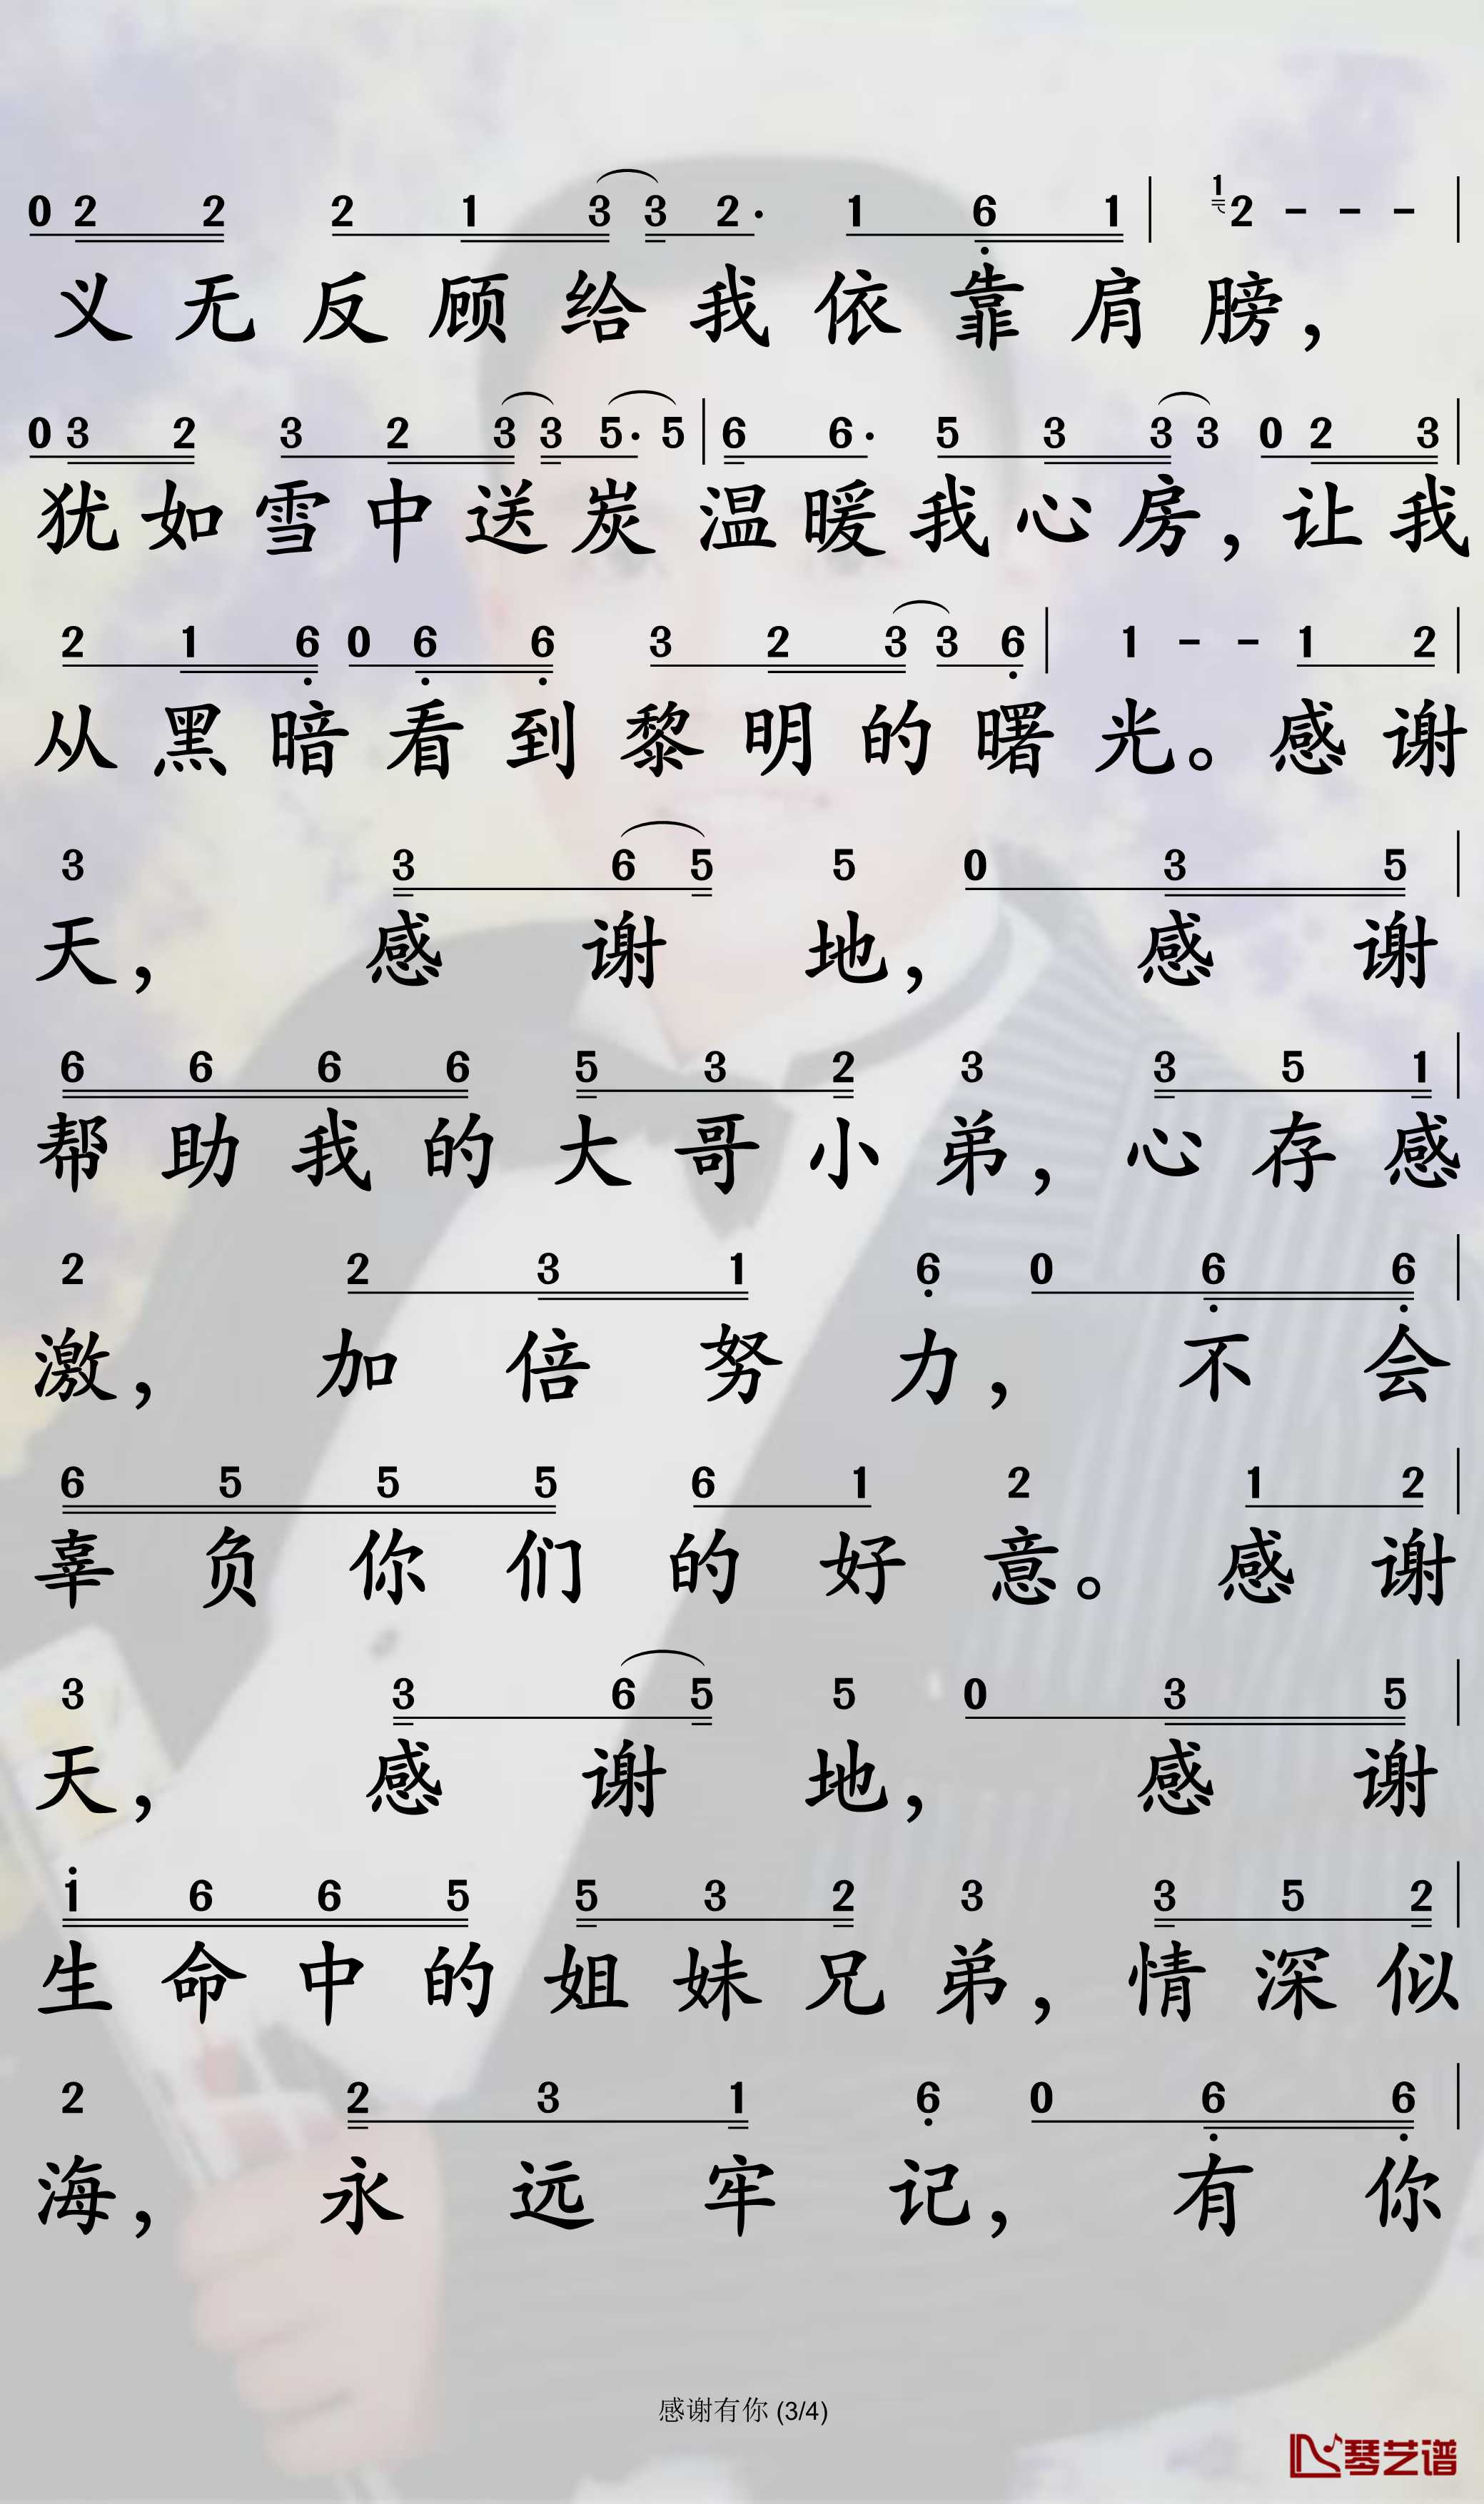 0 2 2 2 1 3 3 2· 1 6 1 | 1 2 - - - |
义无反顾给我依靠肩膀，
0 3 2 3 2 3 3 5· 5 | 6 6· 5 3 3 3 0 2 3 |
犹如雪中送炭温暖我心房，让我
2 1 6 0 6 6 3 2 3 3 6 | 1 - - 1 2 |
从黑暗看到黎明的曙光。感谢
3 3 6 5 5 0 3 5 |
天，感谢地，感谢
6 6 6 6 5 3 2 3 3 5 1 |
帮助我的大哥小弟，心存感
2 2 3 1 6 0 6 6 |
激，加倍努力，不会
6 5 5 5 6 1 2 1 2 |
辜负你们的好意。感谢
3 3 6 5 5 0 3 5 |
天，感谢地，感谢
1 6 6 5 5 3 2 3 3 5 2 |
生命中的姐妹兄弟，情深似
2 2 3 1 6 0 6 6 |
海，永远牢记，有你
感谢有你 (3/4)
琴艺谱